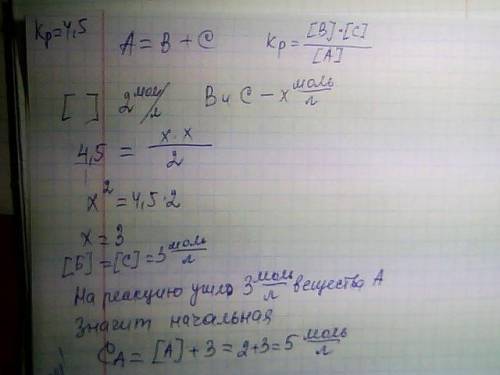 Kp=4,5
A = B + C    Kp = [B]·[C] / [A]
[ ] 2 моль/л    B и C – x моль/л
4,5 = x·x / 2
x² = 4,5·2
x = 3
[Б] = [C] = 3 моль/л
На реакцию ушло 3 моль/л вещества A
Значит начальная
C_A = [A] + 3 = 2+3 = 5 моль/л